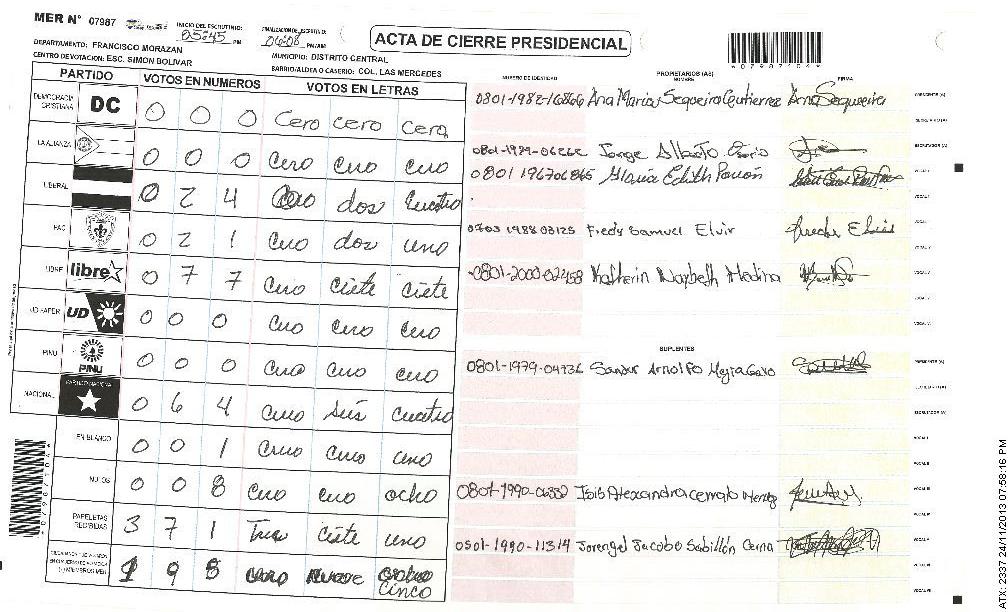 MER N° 07987
INICIO DEL ESCRUTINIO: 05:45 PM
FINALIZACION ESCRUTINIO: 06:08 PM/AM
ACTA DE CIERRE PRESIDENCIAL
DEPARTAMENTO: FRANCISCO MORAZAN
MUNICIPIO: DISTRITO CENTRAL
CENTRO DE VOTACION: ESC. SIMON BOLIVAR
BARRIO/ALDEA O CASERIO: COL. LAS MERCEDES
PARTIDO VOTOS EN NUMEROS VOTOS EN LETRAS
DEMOCRACIA CRISTIANA DC 0 0 0 Cero cero cero
LA ALIANZA 0 0 0 Cero cero cero
LIBERAL 0 2 4 Cero dos Cuatro
PAC 0 2 1 Cero dos uno
LIBRE libre 0 7 7 Cero Ciete Ciete
UD FAPER UD 0 0 0 Cero Cero Cero
PINU PINU 0 0 0 Cero Cero Cero
NACIONAL PARTIDO NACIONAL 0 6 4 Cero Seis Cuatro
EN BLANCO 0 0 1 Cero Cero uno
NULOS 0 0 8 Cero Cero ocho
PAPELETAS RECIBIDAS 3 7 1 Tres Ciete uno
1 9 5 nueve Cinco
NUMERO DE IDENTIDAD PROPIETARIOS (AS) NOMBRE FIRMA
0801-1982-16866 Ana Maria Sequeira Gutierrez Ana Sequeira PRESIDENTE (A)
SECRETARIO (A)
0801-1989-06262 Jorge Alberto Osorio ESCRUTADOR (A)
0801 196706865 Gloria Edith Pavon VOCAL I
VOCAL II
0703 1988 03125 Fredy Samuel Elvir Fredy Elvir VOCAL III
VOCAL IV
0801-2000-02458 Katherin Marbeth Medina VOCAL V
SUPLENTES
0801-1979-04736 Sandor Arnolfo PRESIDENTE (A)
SECRETARIO (A)
ESCRUTADOR (A)
VOCAL I
VOCAL II
0801-1990-06332 Isis Alexandra Cerrato VOCAL III
VOCAL IV
0501-1990-11314 Jorengel Jacobo Sabillón Cerna VOCAL V
ATX: 2337 24/11/2013 07:58:16 PM